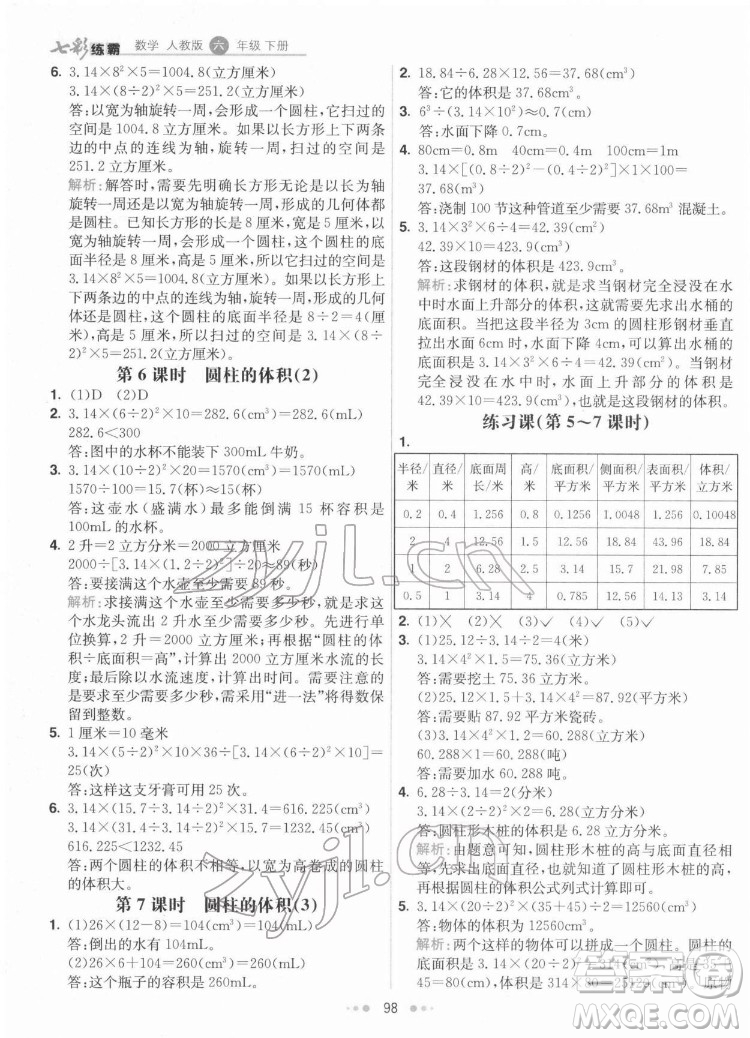 七彩练霸 数学 人教版 六 年级 下册
6. 3.14×8²×5=1004.8(立方厘米)
3.14×(8÷2)²×5=251.2(立方厘米)
答:以宽为轴旋转一周,会形成一个圆柱,它扫过的
空间是 1004.8 立方厘米。如果以长方形上下两条
边的中点的连线为轴,旋转一周,它扫过的空间是
251.2 立方厘米。
解析:解答时,需要先明确长方形无论是以长为轴
旋转一周还是以宽为轴旋转一周,形成的几何体都
是圆柱。已知长方形的长是 8 厘米,宽是 5 厘米,
以宽为轴旋转一周,形成一个圆柱,这个圆柱的底
面半径是 8 厘米,高是 5 厘米,所以扫过的空间是
3.14×8²×5=1004.8(立方厘米)。如果以长方形上
下两条边的中点的连线为轴,旋转一周,形成的几何
体还是圆柱,这个圆柱的底面半径是 8÷2=4(厘
米),高是 5 厘米,所以扫过的空间是 3.14×(8÷
2)²×5=251.2(立方厘米)。
第 6 课时 圆柱的体积(2)
1. (1)D (2)D
2. 3.14×(6÷2)²×10=282.6(cm³)=282.6(mL)
282.6<300
答:图中的水杯不能装下 300mL 牛奶。
3. 3.14×(10÷2)²×20=1570(cm³)=1570(mL)
1570÷100=15.7(杯)≈15(杯)
答:这壶水(盛满水)最多能倒满 15 杯容积是
100mL 的水杯。
4. 2 升=2 立方分米=2000 立方厘米
2000÷[3.14×(1.2÷2)²×20]≈89(秒)
答:要接满这个水壶至少需要 89 秒。
解析:求接满这个水壶至少需要多少秒,就是求这
个水龙头流出 2 升水至少需要多少秒。先进行单
位换算,2 升=2000 立方厘米;再根据“圆柱的体
积÷底面积=高”,计算出 2000 立方厘米水流的长
度,最后除以水流速度,计算出时间。需要注意的
是要求至少需要多少秒,需采用“进一法”将得数保
留到整数。
5. 1 厘米=10 毫米
3.14×(5÷2)²×10×36÷[3.14×(6÷2)²×10]=
25(次)
答:这样这支牙膏可用 25 次。
6. 3.14×(15.7÷3.14÷2)²×31.4=616.225(cm³)
3.14×(31.4÷3.14÷2)²×15.7=1232.45(cm³)
616.225<1232.45
答:两个圆柱的体积不相等,以宽为高卷成的圆柱
的体积大。
第 7 课时 圆柱的体积(3)
1. (1)26×(12-8)=104(cm³)=104(mL)
答:倒出的水有 104mL。
(2)26×10=260(cm³)=260(mL)
答:这个瓶子的容积是 260mL。
2. 18.84÷6.28×12.56=37.68(cm³)
答:它的体积是 37.68cm³。
3. 6³÷(3.14×10²)≈0.7(cm)
答:水面下降 0.7cm。
4. 80cm=0.8m 40cm=0.4m 100cm=1m
3.14×[(0.8÷2)²-(0.4÷2)²]×1×100=
37.68(m³)
答:浇制 100 节这种管道至少需要 37.68m³ 混凝土。
5. 3.14×3²×6÷4=42.39(cm²)
42.39×10=423.9(cm³)
答:这段钢材的体积是 423.9cm³。
解析:求钢材的体积,就是求当钢材完全浸没在水
中时水面上升部分的体积,所以需要先求出水桶的
底面积。当把这段半径为 3cm 的圆柱形钢材垂直
拉出水面 6cm 时,水面下降 4cm,可求出水桶的底
面积是 3.14×3²×6÷4=42.39(cm²)。当钢材完
全浸没在水中时,水面上升部分的体积是
42.39×10=423.9(cm³),即钢材的体积。
练习课(第 5~7 课时)
1.
半径/米 直径/米 底面周长/米 高/米 底面积/平方米 侧面积/平方米 表面积/平方米 体积/立方米
0.2 0.4 1.256 0.8 0.1256 1.0048 1.256 0.10048
2 4 12.56 1.5 12.56 18.84 43.96 18.84
1 2 6.28 2.5 3.14 15.7 21.98 7.85
0.5 1 3.14 4 0.785 12.56 14.13 3.14
2. (1)× (2)× (3)✓ (4)✓ (5)✓
3. (1)25.12÷3.14÷2=4(米)
3.14×4²×1.5=75.36(立方米)
答:需要挖土 75.36 立方米。
(2)25.12×1.5+3.14×4²=87.92(平方米)
答:需要 87.92 平方米瓷砖。
(3)3.14×4²×1.2=60.288(立方米)
60.288×1=60.288(吨)
答:需要加水 60.288 吨。
4. 6.28÷3.14=2(分米)
3.14×(2÷2)²×2=6.28(立方分米)
答:圆柱形木桩的体积是 6.28 立方分米。
解析:由题意可知,圆柱形木桩的高与底面直径相
等,所以先求出底面直径,也就求出了木桩的高,再
根据圆柱的体积公式列式计算即可。
5. 3.14×(20÷2)²×(35+45)÷2=12560(cm³)
答:物体的体积是 12560cm³。
解析:两个这样的物体可以拼成一个圆柱。圆柱的
底面积是 3.14×(20÷2)²=314(cm²),高是 35+
45=80(cm),体积是 314×80
98
zyjl.cn
zyjl.cn
MXQE.COM